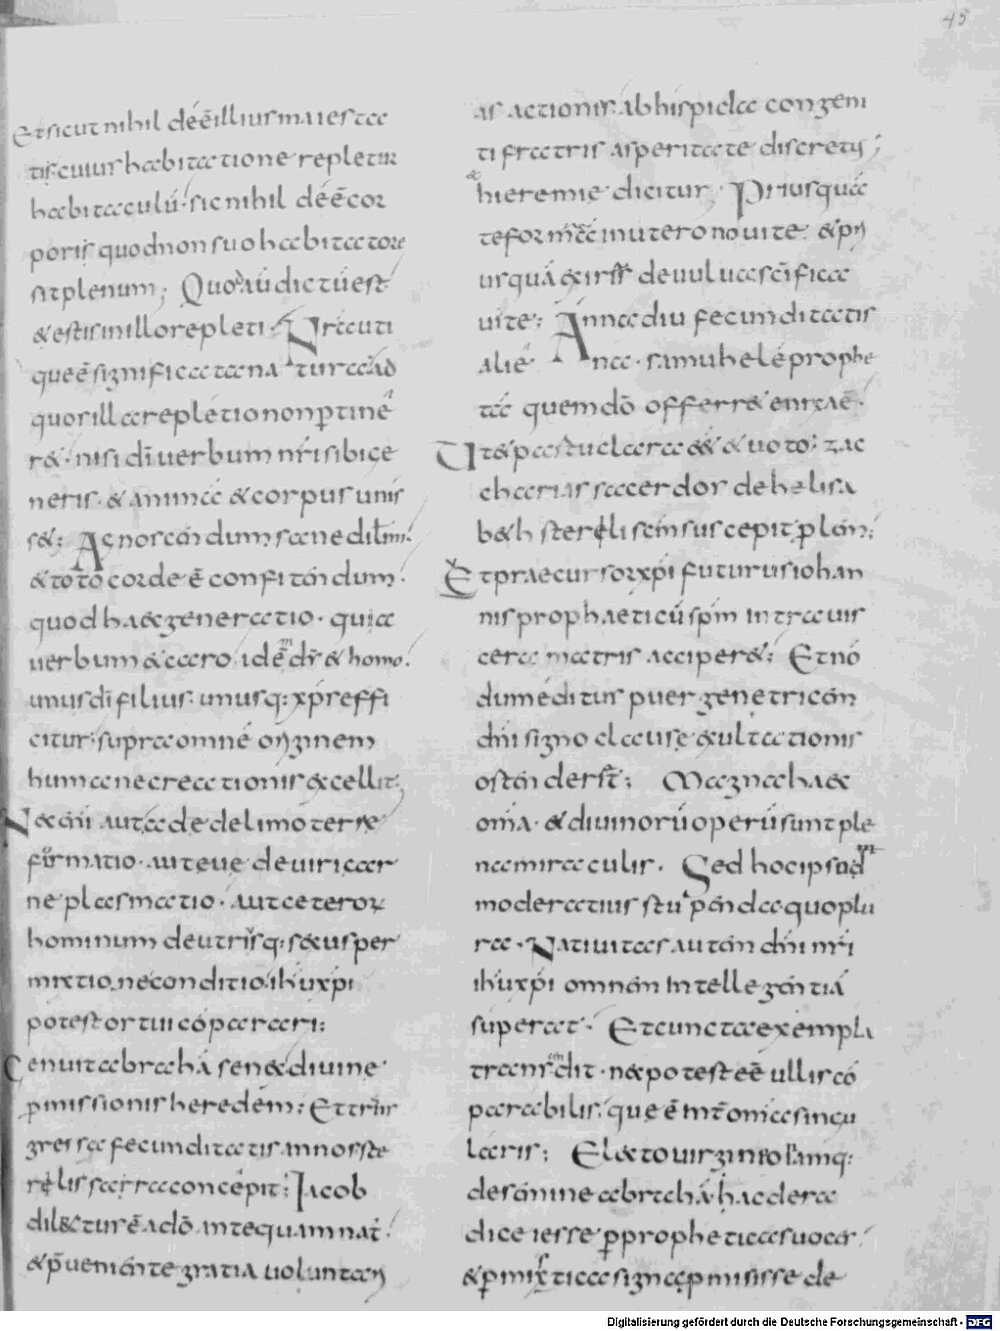 45
Et sicut nihil deē illius maiesta
tis cuius habitatione repletur
habitaculū· sic nihil deē cor
poris quod non suo habitatore
sit plenum; Quod aū dictū est
& estis in illo repleti·
que ē significata natura ad
quos illa repletio non ptinē
r&· nisi dī uerbum nr̄i sibi ge
neris· & animā & corpus unis
s&: Agnoscendum sane diln̄i
& toto corde ē confitendum·
quod haec generatio· quia
uerbum & caro idē dr̄ & homo·
unus dī filius· unusq: xp̄s effi
citur· supra omnē originem
humane creationis excellit;
Nec enī aut ade de limo terre
formatio· aut eue de uiri car
ne plasmatio· aut ceterorum
hominum de utrisq: sexus per
mixtione conditio· ihū xp̄i
potest ortui cōparari:
Genuit abrahā senex diuine
pmissionis heredem: Et
gressa fecunditatis annos ste
relis sarra concēpit: Iacob
dilectur ē a dō antequam nat·
& pueniente gratia uoluntari
as actionis· ab hispida congeni
ti fratris asperitate discretus;
hieremie dicitur· Priusquā
te formarē in utero noui te· & pri
usquā exires de uulua sc̄ifica
ui te: Anna diu fecunditatis
aliena· samuhelē prophe
tā quem dō offerret enixa ē·
Ut & partu clara e&̄ & uoto: zac
charias sacerdos de helisa
beth stereli scm̄ suscepit plem̄:
Et praecursor xp̄i futurus iohan
nis prophaeticū sp̄m intra uis
cera matris acciper&: Et nō
dum editus puer genetricem
dn̄i signo clause exultationis
ostenderet; Magna haec
om̄a· & diuinorū operū sunt ple
na miraculis· Sed hoc ipsud
moderatius stupenda· quo plu
ra· Natiuitas autem dn̄i nr̄i
ihū xp̄i omnem intellegentiā
superat· Et cuncta exempla
transcendit· nec potest eē ullis cō
parabilis· que ē inter omia singu
laris; Electo uirgini
de semine abrahā· hac de ra
dice iesse p propheticas uoces·
& p mixtica signa pmisisse de
Digitalisierung gefördert durch die Deutsche Forschungsgemeinschaft - DFG